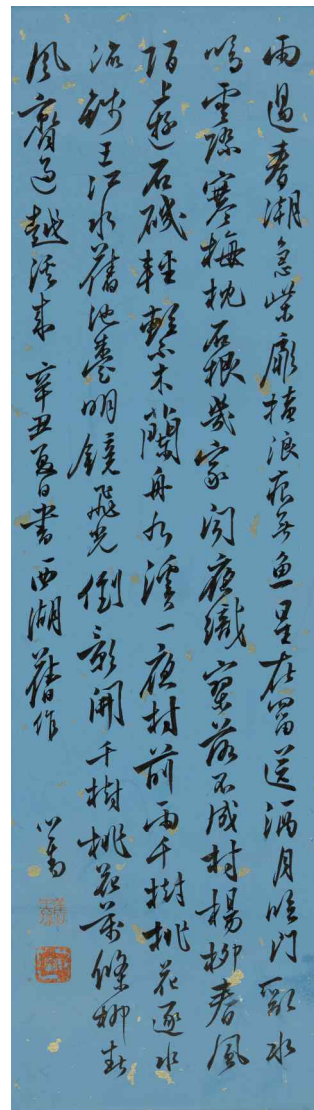 雨過春湖急柴扉接浪痕無魚星在罶送酒月臨門斷水
鳴雲際寒梅枕石根幾家閒夜織寥落不成村楊柳春風
陌上遊石磯輕繫木蘭舟九溪一夜村前雨千樹桃花逐水
流錢王江水舊池臺明鏡飛光倒影開千樹桃花萬條柳春
風齊過越溪來 辛丑夏日書西湖舊作 心畬